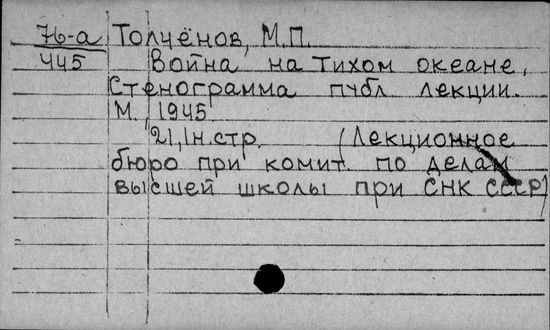 76-а Толчёнов, М.П.
445 Война на Тихом океане.
Стенограмма публ. лекции.
М., 1945.
21, 1н.стр. (Лекционное
бюро при комит. по делам
высшей школы при СНК СССР)